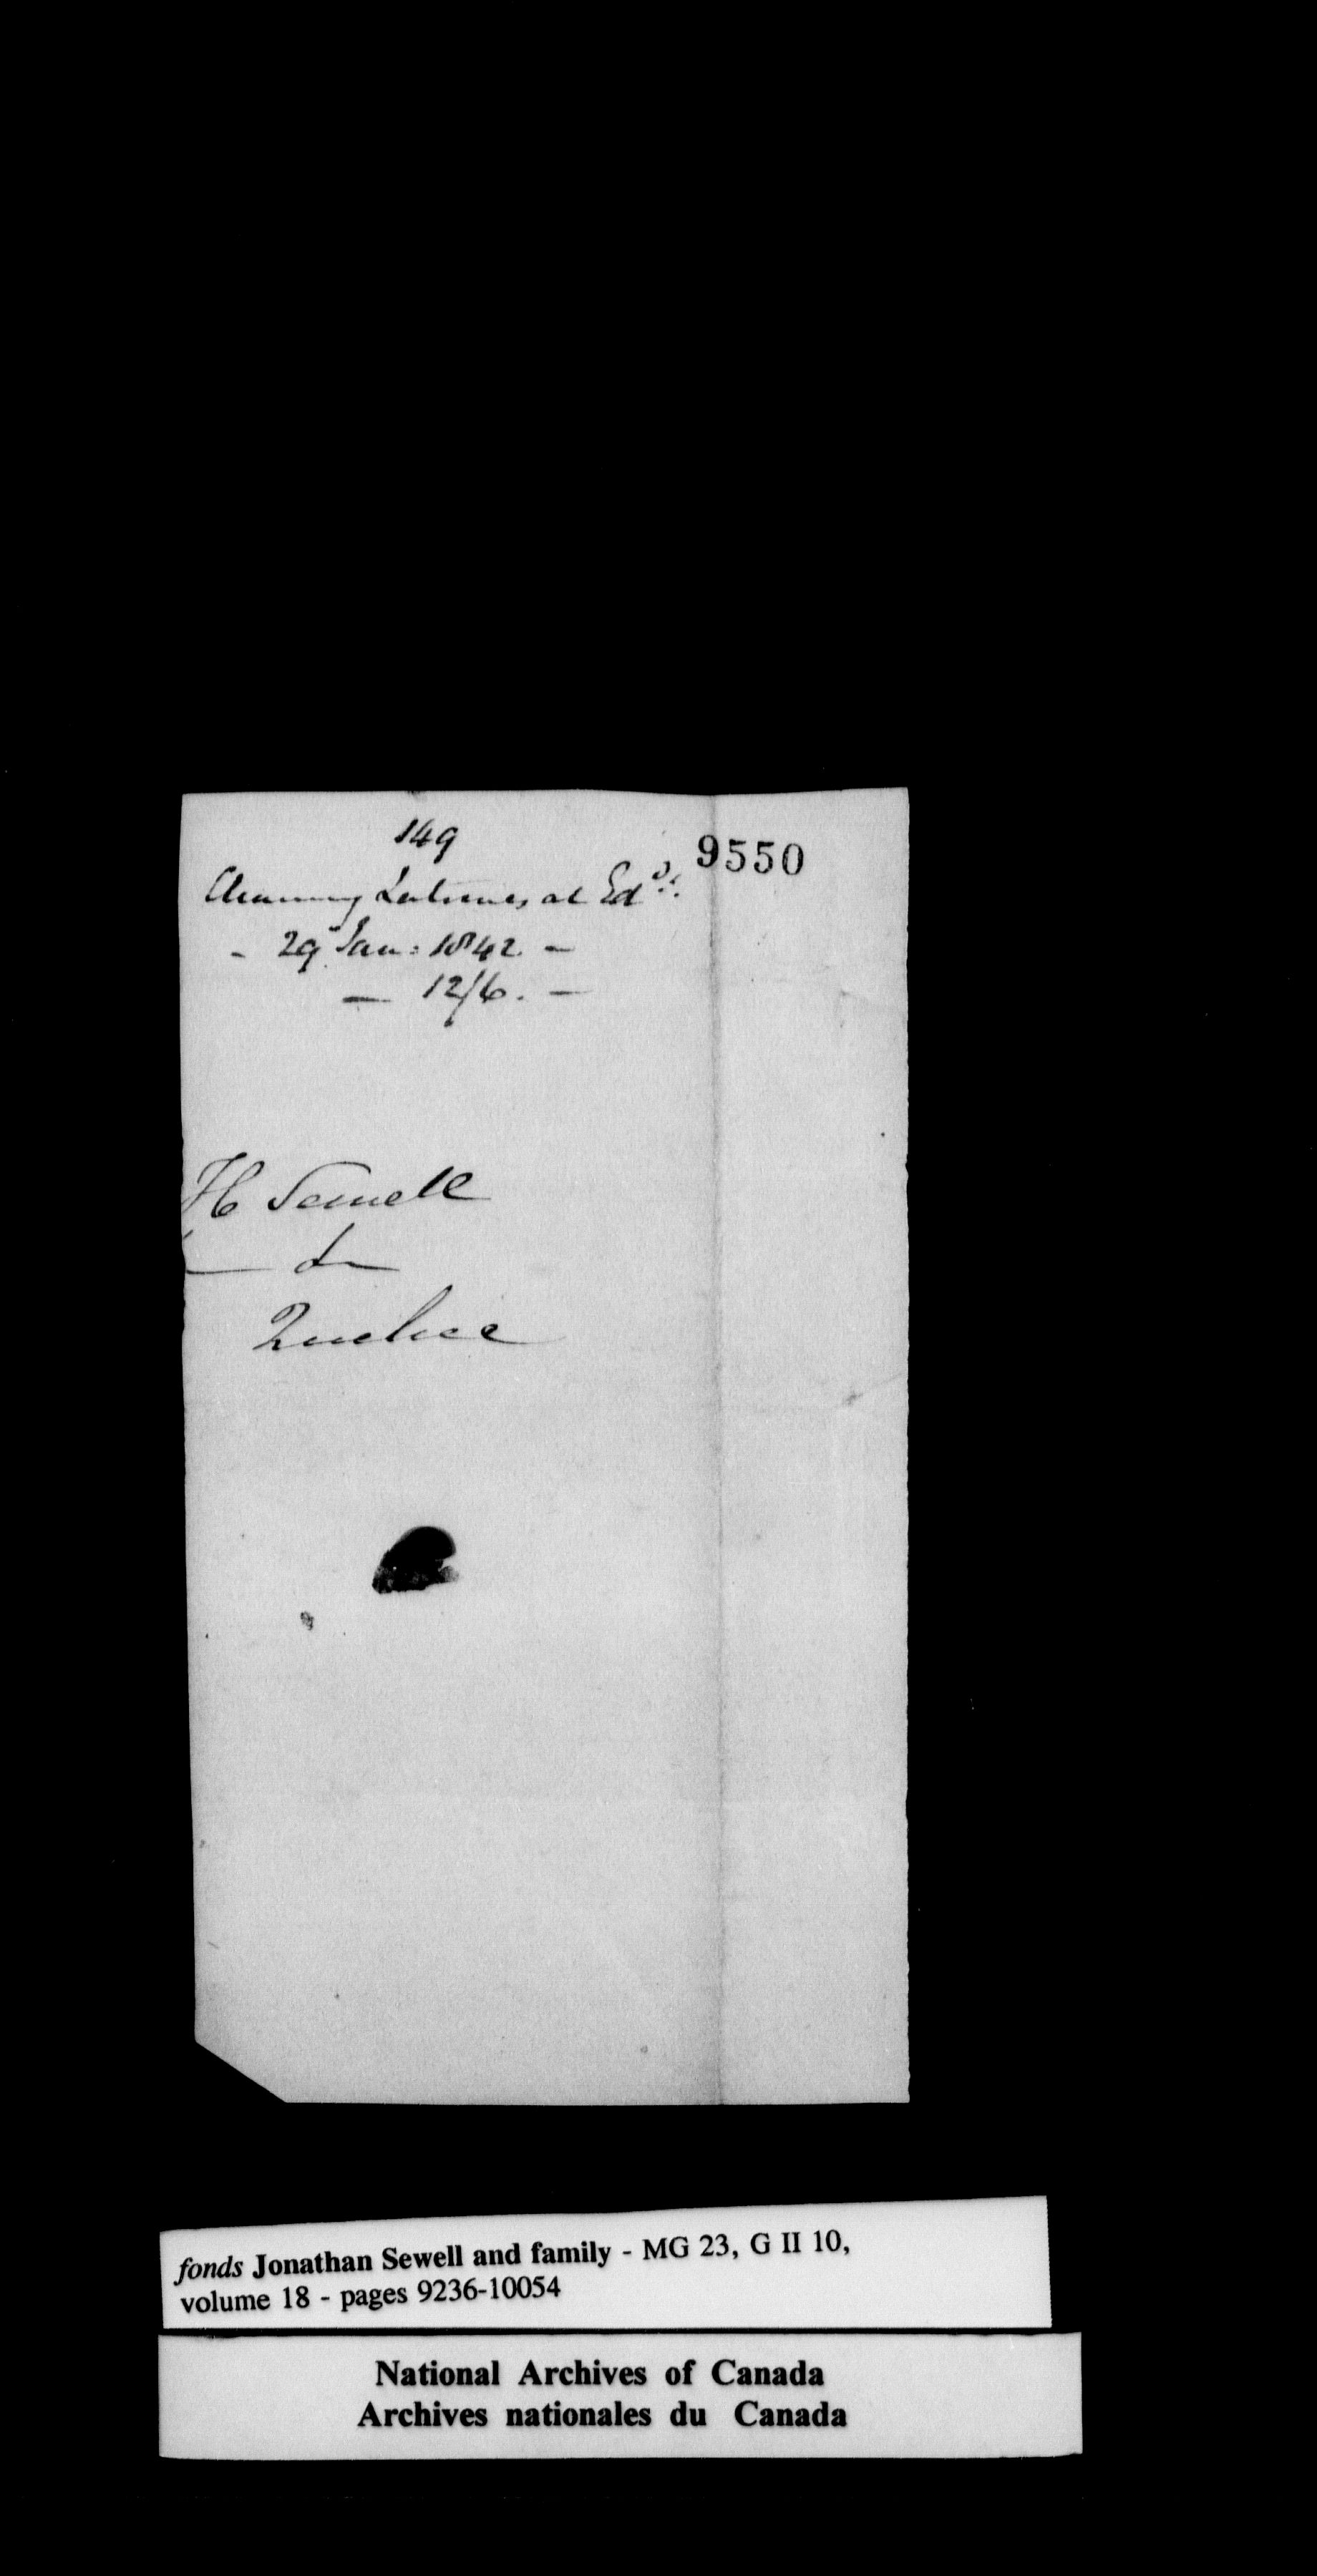 149
9550
Cleaning Latrines at Ed^d.
- 29 Jan: 1842. -
- 12/6. -
H Sewell
Quebec
fonds Jonathan Sewell and family - MG 23, G II 10,
volume 18 - pages 9236-10054
National Archives of Canada
Archives nationales du Canada